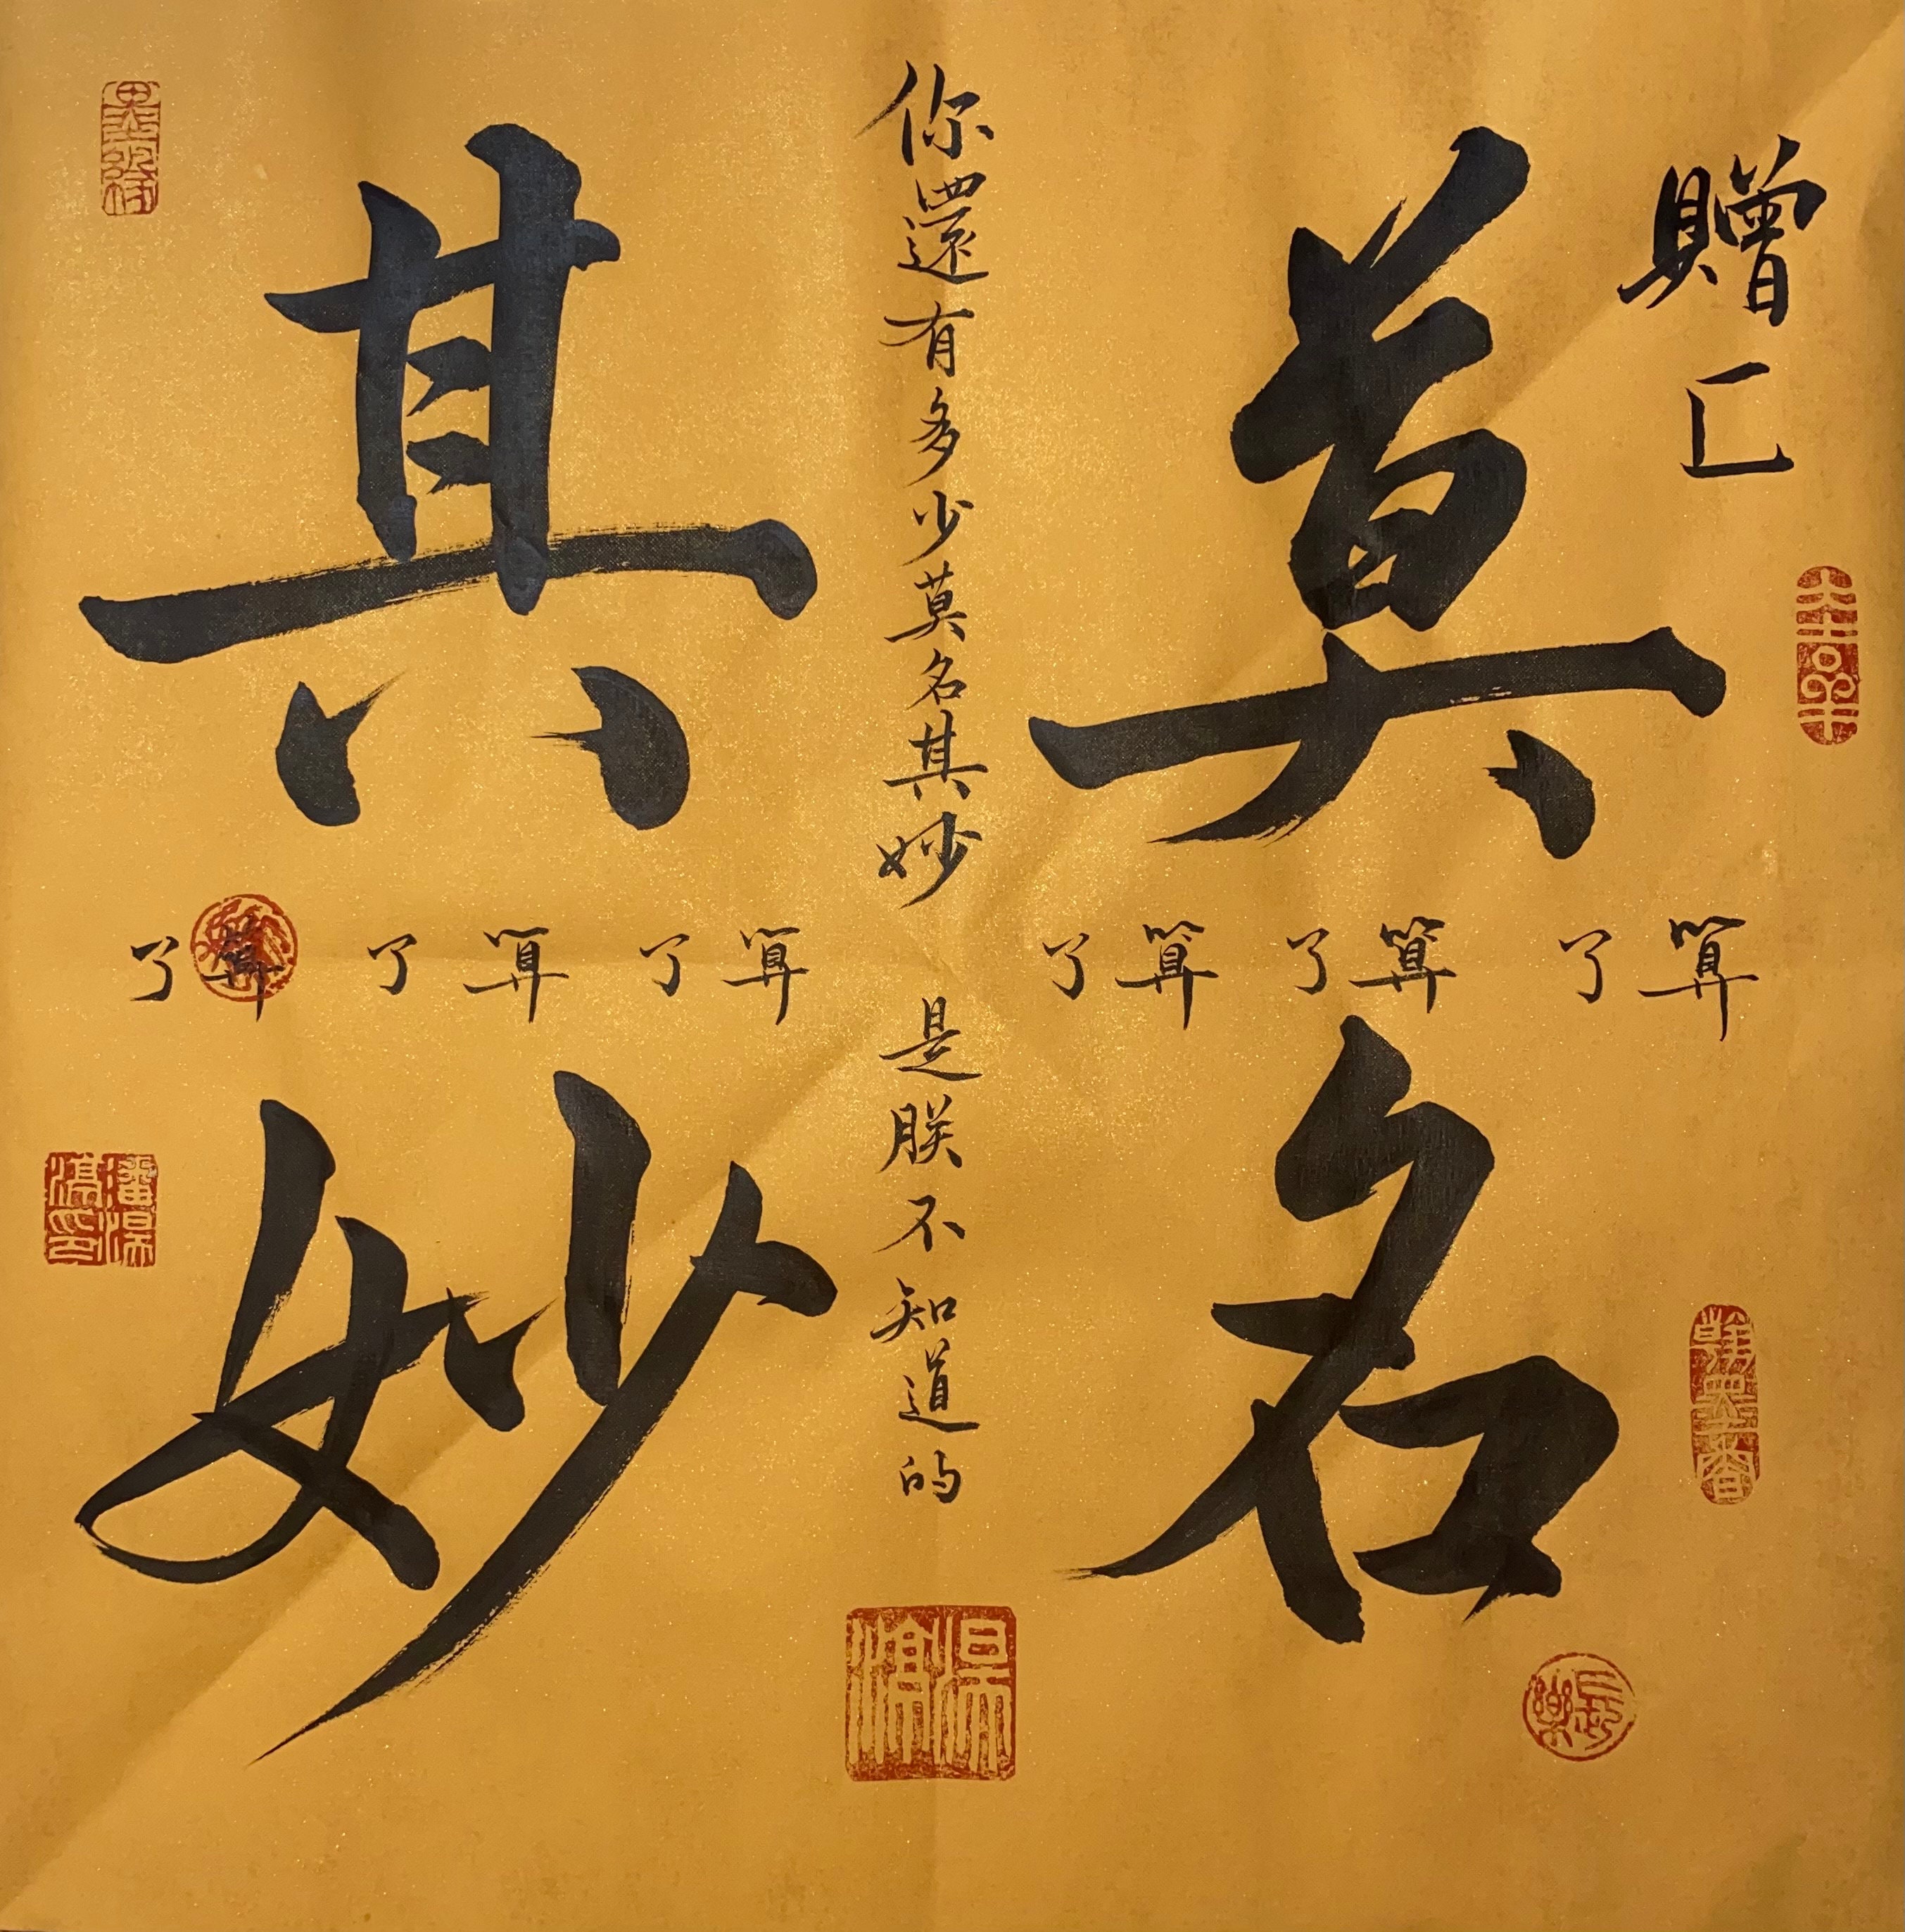 贈匚
莫名
其妙
你還有多少莫名其妙
是朕不知道的
算了算了算了算了算了算了
翰墨香
長樂
墨緣